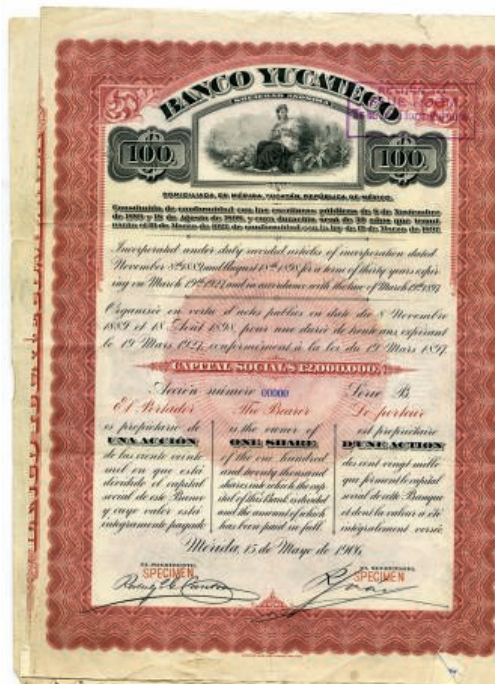 BANCO YUCATECO
SOCIEDAD ANÓNIMA
100 100
DOMICILIADA EN MÉRIDA, YUCATÁN, REPÚBLICA DE MÉXICO.
Constituida de conformidad con las escrituras públicas de 8 de Noviembre
de 1889 y 18 de Agosto de 1898, y cuya duración será de 30 años que
el 19 de Marzo de 1927, de conformidad con la ley de 19 de Marzo de 1897.
Incorporated under duly recorded articles of incorporation dated
November 8th 1889 and August 18th 1898 for a term of thirty years expir-
ing on March 19th 1927 and in accordance with the law of March 19th 1897
Organisée en vertu d'actes publics en date du 8 Novembre
1889 et 18 Août 1898, pour une durée de trente ans, expirant
le 19 Mars 1927, conformément à la loi du 19 Mars 1897.
CAPITAL SOCIAL $ 12.000,000.
Acción número 00000 Série B
El Portador
es propietario de
UNA ACCIÓN
de las ciento veinte
mil en que está
dividido el capital
social de este Banco
y cuyo valor está
íntegramente pagado
The Bearer
is the owner of
ONE SHARE
of the one hundred
and twenty thousand
shares into which the cap-
ital of this Bank is divided
and the amount of which
has been paid in full.
Le porteur
est propriétaire
D'UNE ACTION
des cent vingt mille
que forment le capital
social de cette Banque
et dont la valeur a été
intégralement versée
Mérida, 15 de Mayo de 1906.
EL PRESIDENTE, EL SECRETARIO,
SPECIMEN SPECIMEN